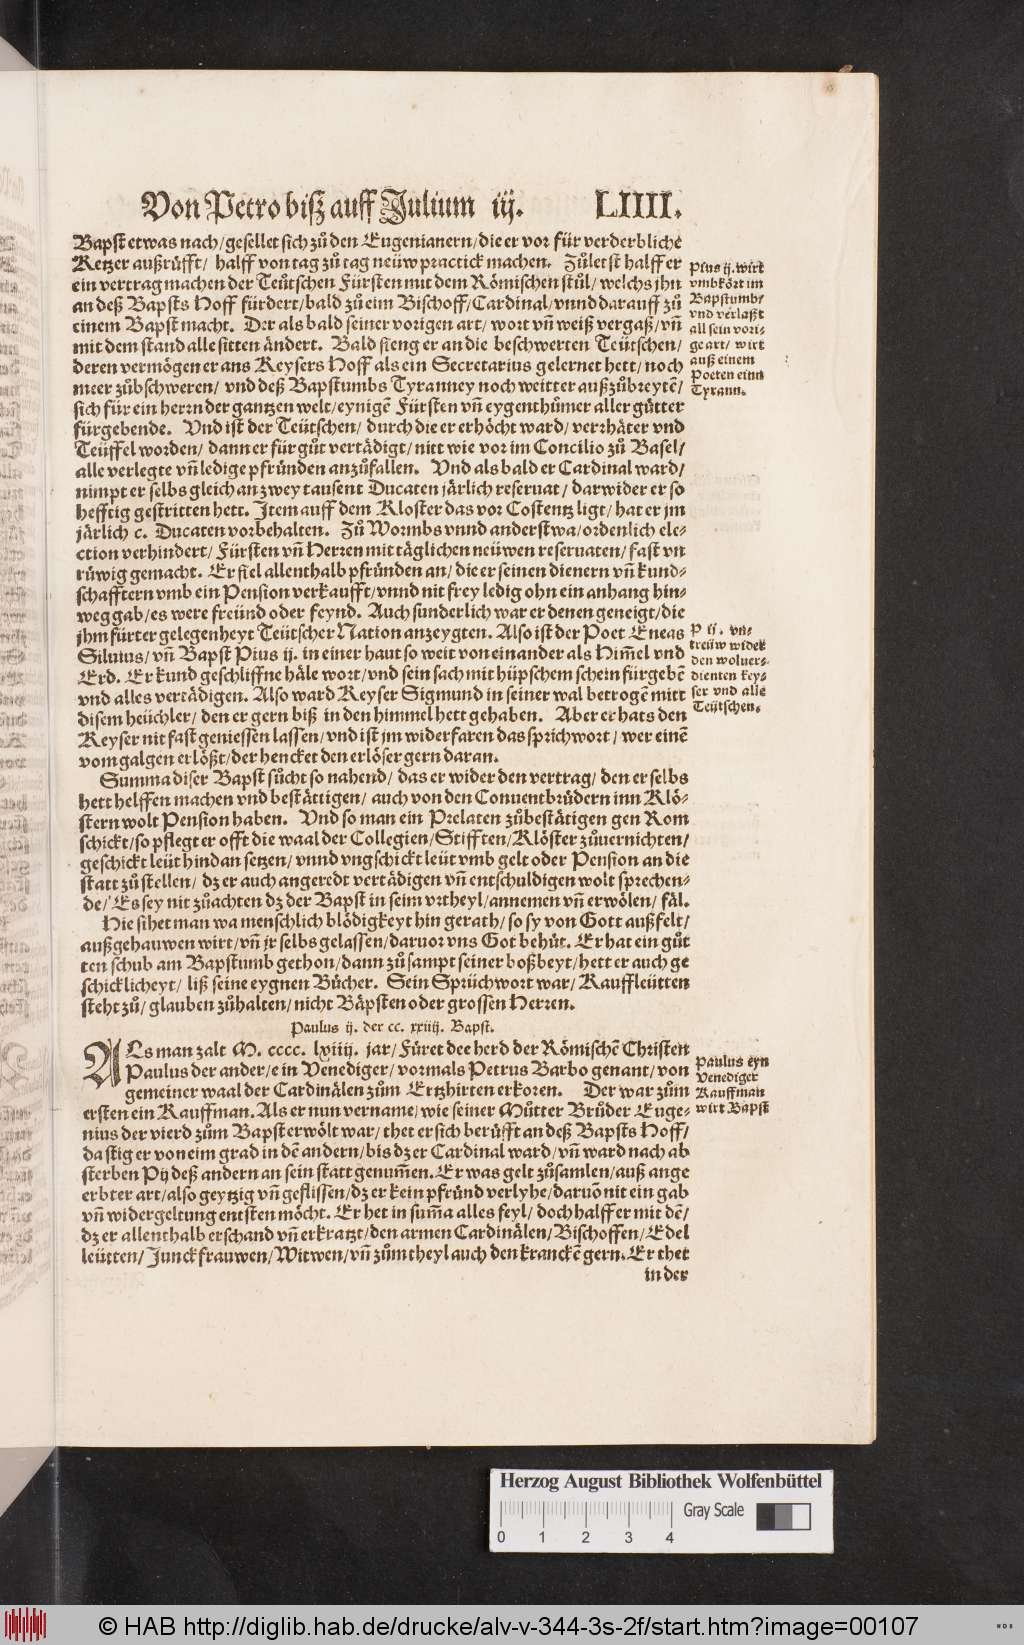 Von Petro biß auff Julium iij. LIIII.
Bapst etwas nach/ gesellet sich zů den Eugenianern/ die er vor für verderbliche
Ketzer außrůfft/ halff von tag zů tag neüw practick machen. Zůletst halff er
ein vertrag machen der Teütschen Fürsten mit dem Römischen stůl/ welchs jhn
an deß Bapsts Hoff fürdert/ bald zů eim Bischoff/ Cardinal/ vnnd darauff zů
einem Bapst macht. Der als bald seiner vorigen art/ wort vñ weiß vergaß/ vñ
mit dem stand alle sitten ändert. Bald fieng er an die beschwerten Teütschen/
deren vermögen er ans Keysers Hoff als ein Secretarius gelernet hett/ noch
meer zůbschweren/ vnd deß Bapstumbs Tyranney noch weitter außzůbreytē/
sich für ein herrn der gantzen welt/ eynigē Fürsten vñ eygenthůmer aller gůtter
fürgebende. Vnd ist der Teütschen/ durch die er erhöcht ward/ verrhäter vnd
Teüffel worden/ dann er für gůt vertädigt/ nitt wie vor im Concilio zů Basel/
alle verlegte vñ ledige pfründen anzůfallen. Vnd als bald er Cardinal ward/
nimpt er selbs gleich an zwey tausent Ducaten järlich reseruat/ darwider er so
hefftig gestritten hett. Item auff dem Kloster das vor Costentz ligt/ hat er jm
järlich c. Ducaten vorbehalten. Zů Wormbs vnnd anderstwa/ ordenlich ele-
ction verhindert/ Fürsten vñ Herren mit täglichen neüwen reseruaten/ fast vn
růwig gemacht. Er fiel allenthalb pfründen an/ die er seinen dienern vñ kund-
schafftern vmb ein Pension verkaufft/ vnnd nit frey ledig ohn ein anhang hin-
weg gab/ es were freünd oder feynd. Auch sunderlich war er denen geneigt/ die
jhm fürter gelegenheyt Teütscher Nation anzeygten. Also ist der Poet Eneas
Siluius/ vñ Bapst Pius ij. in einer haut so weit von einander als Him̃el vnd
Erd. Er kund geschliffne häle wort/ vnd sein sach mit hüpschem schein fürgebē
vnd alles vertädigen. Also ward Keyser Sigmund in seiner wal betrogē mitt
disem heüchler/ den er gern biß in den himmel hett gehaben. Aber er hats den
Keyser nit fast geniessen lassen/ vnd ist jm widerfaren das sprichwort/ wer einē
vom galgen erlößt/ der hencket den erlöser gern daran.
Summa diser Bapst sůcht so nahend/ das er wider den vertrag/ den er selbs
hett helffen machen vnd bestättigen/ auch von den Conuentbrůdern inn Klö-
stern wolt Pension haben. Vnd so man ein Prelaten zůbestätigen gen Rom
schickt/ so pflegt er offt die waal der Collegien/ Stifften/ Klöster zůuernichten/
geschickt leüt hindan setzen/ vnnd vngschickt leüt vmb gelt oder Pension an die
statt zů stellen/ dz er auch angeredt vertädigen vñ entschuldigen wolt sprechen-
de/ Es sey nit zůachten dz der Bapst in seim vrtheyl/ annemen vñ erwölen/ fäl.
Hie sihet man wa menschlich blödigkeyt hin gerath/ so sy von Gott außkelt/
außgehauwen wirt/ vñ jr selbs gelassen/ daruor vns Got behůt. Er hat ein gůt
ten schub am Bapstumb gethon/ dann zů sampt seiner boßheyt/ hett er auch ge
schicklicheyt/ liß seine eygnen Bücher. Sein Sprüchwort war/ Kauffleütten
steht zů/ glauben zůhalten/ nicht Bäpsten oder grossen Herren.
Paulus ij. der cc. xxiiij. Bapst.
ALs man zalt M. cccc. lxiiij. jar/ Füret dee herd der Römischē Christen
Paulus der ander/ ein Venediger/ vormals Petrus Barbo genant/ von
gemeiner waal der Cardinälen zům Ertzhirten erkoren. Der war zům
ersten ein Kauffman. Als er nun vername/ wie seiner Můtter Brůder Euge-
nius der vierd zům Bapst erwölt war/ thet er sich berůfft an deß Bapsts Hoff/
da stig er von eim grad in dē andern/ bis dz er Cardinal ward/ vñ ward nach ab
sterben Pij deß andern an sein statt genum̃en. Er was gelt zůsamlen/ auß ange
erbter art/ also geytzig vñ geflissen/ dz er kein pfründ verlyhe/ daruō nit ein gab
vñ widergeltung entsten möcht. Er het in sum̃a alles feyl/ doch halff er mit dē/
dz er allenthalb erschand vñ erkratzt/ den armen Cardinälen/ Bischoffen/ Edel
leütten/ Junckfrauwen/ Witwen/ vñ zům theyl auch den kranckē gern. Er thet
in der
Pius ij. wirt
vmbkört im
Bapstumb/
vnd verlaßt
all sein vori-
ge art/ wirt
auß einem
Poeten einn
Tyrann.
P ij. vn-
treüw wider
den wolver-
dienten key-
ser vnd alle
Teütschen.
Paulus eyn
Venediger
Kauffman
wirt Bapst
Herzog August Bibliothek Wolfenbüttel
Gray Scale
0 1 2 3 4
© HAB http://diglib.hab.de/drucke/alv-v-344-3s-2f/start.htm?image=00107